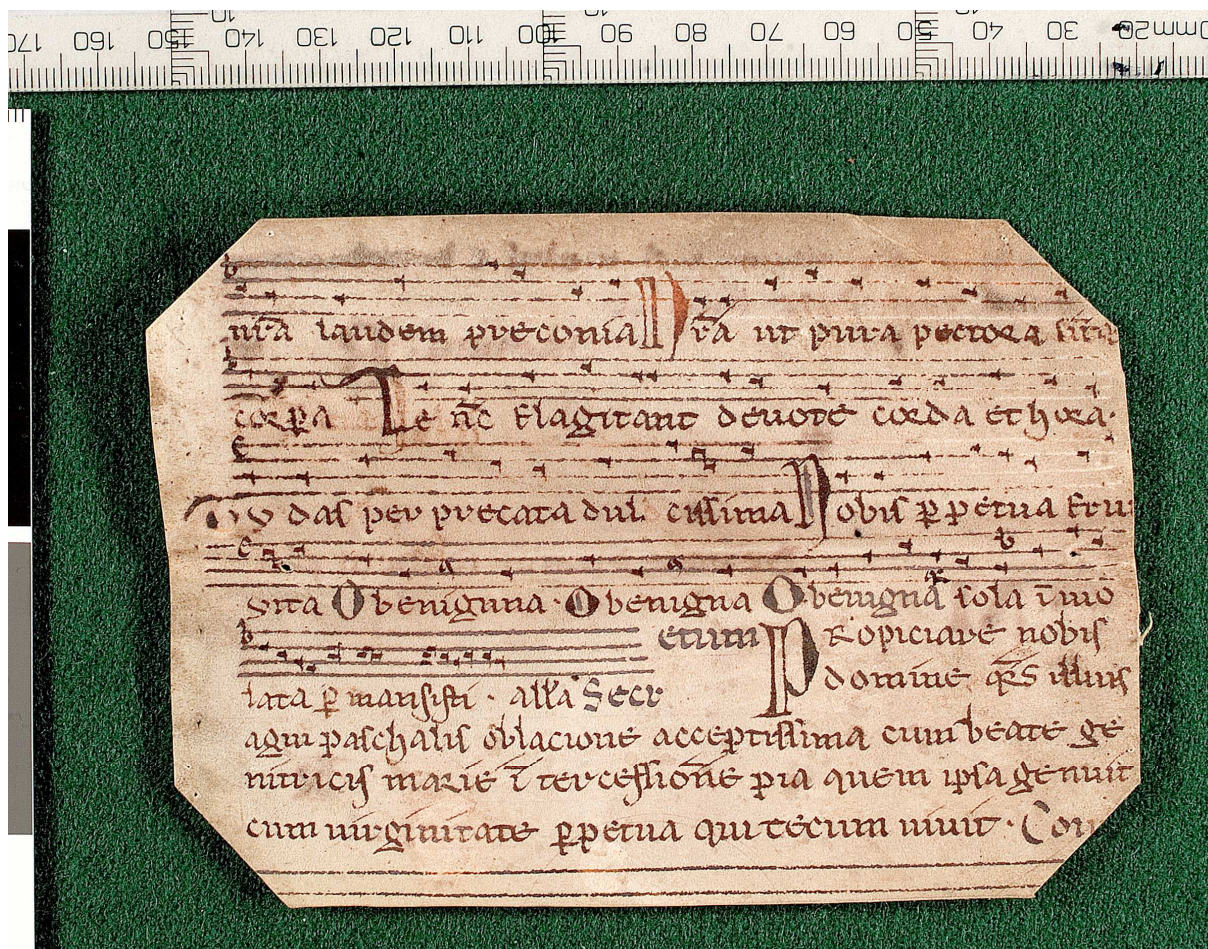 170 160 150 140 130 120 110 100 90 80 70 60 50 40 30 20mm
nr̄a laudem preconia Nr̄a ut pura pectora sint &
corꝑa Te nc̄ flagitant devote corda et hora
Tu das per precata dul cissima Nobis ꝑpetua frui
vita O benignna · O benigna O benigna sola īuio
etum PRopiciare nobis
lata ꝑmansisti · all'a Secr domine qs̄ illius
agni paschalis oblacione acceptissima cum beate ge
nitricis marie ītercessione pia quem ipsa genuit
cum uirginitate ꝑpetua qui tecum uiuit · Com